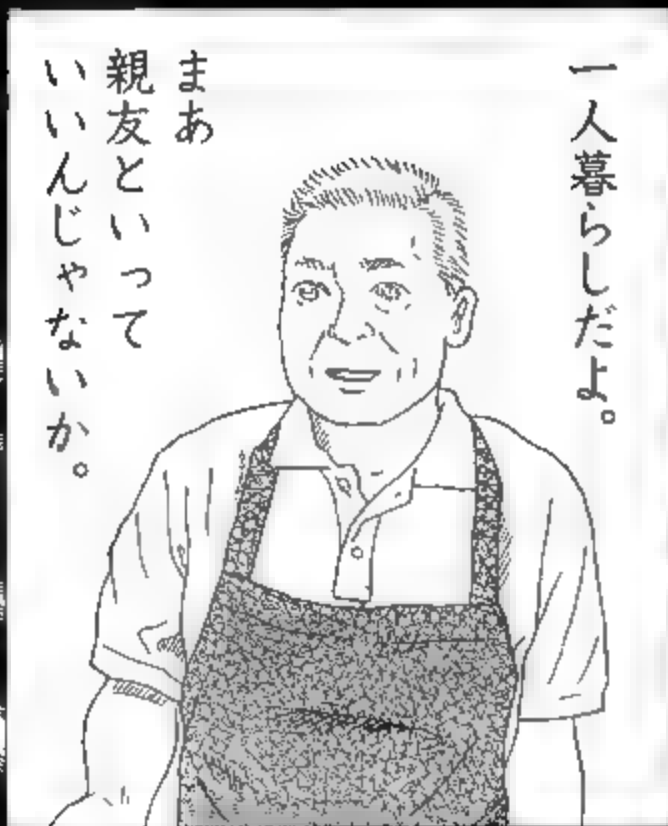 一人暮らしだよ。
まあ
親友といって
いいんじゃないか。